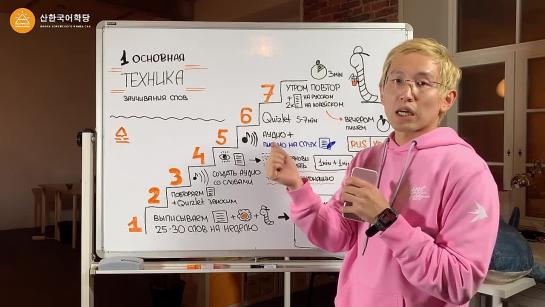 산한국어학당
1 ОСНОВНАЯ
ТЕХНИКА
ЗАУЧИВАНИЯ СЛОВ
7 УТРОМ ПОВТОР
3 min
+ НА РУССКОМ
2x НА КОРЕЙСКОМ
6 Quizlet 5-7 min
ВЕЧЕРОМ
ПИШЕМ
5 АУДИО +
ПИСЬМО НА СЛУХ
RUS
4
1 min + 1 min
3 СОЗДАТЬ АУДИО
СО СЛОВАМИ
2 ПОВТОРЯЕМ
+ Quizlet ЗАНОСИМ
1 ВЫПИСЫВАЕМ
25-30 СЛОВ НА НЕДЕЛЮ